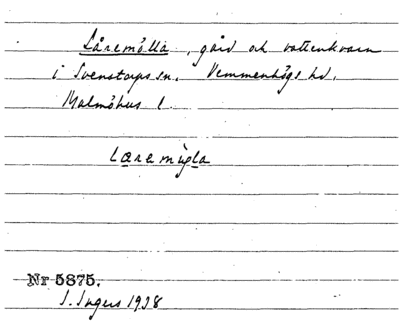 Låremölla, gård och vattenkvarn
i Svenstorps sn. Vemmenhögs hd.
Malmöhus l.
Nr 5875.
I. Ingers 1938